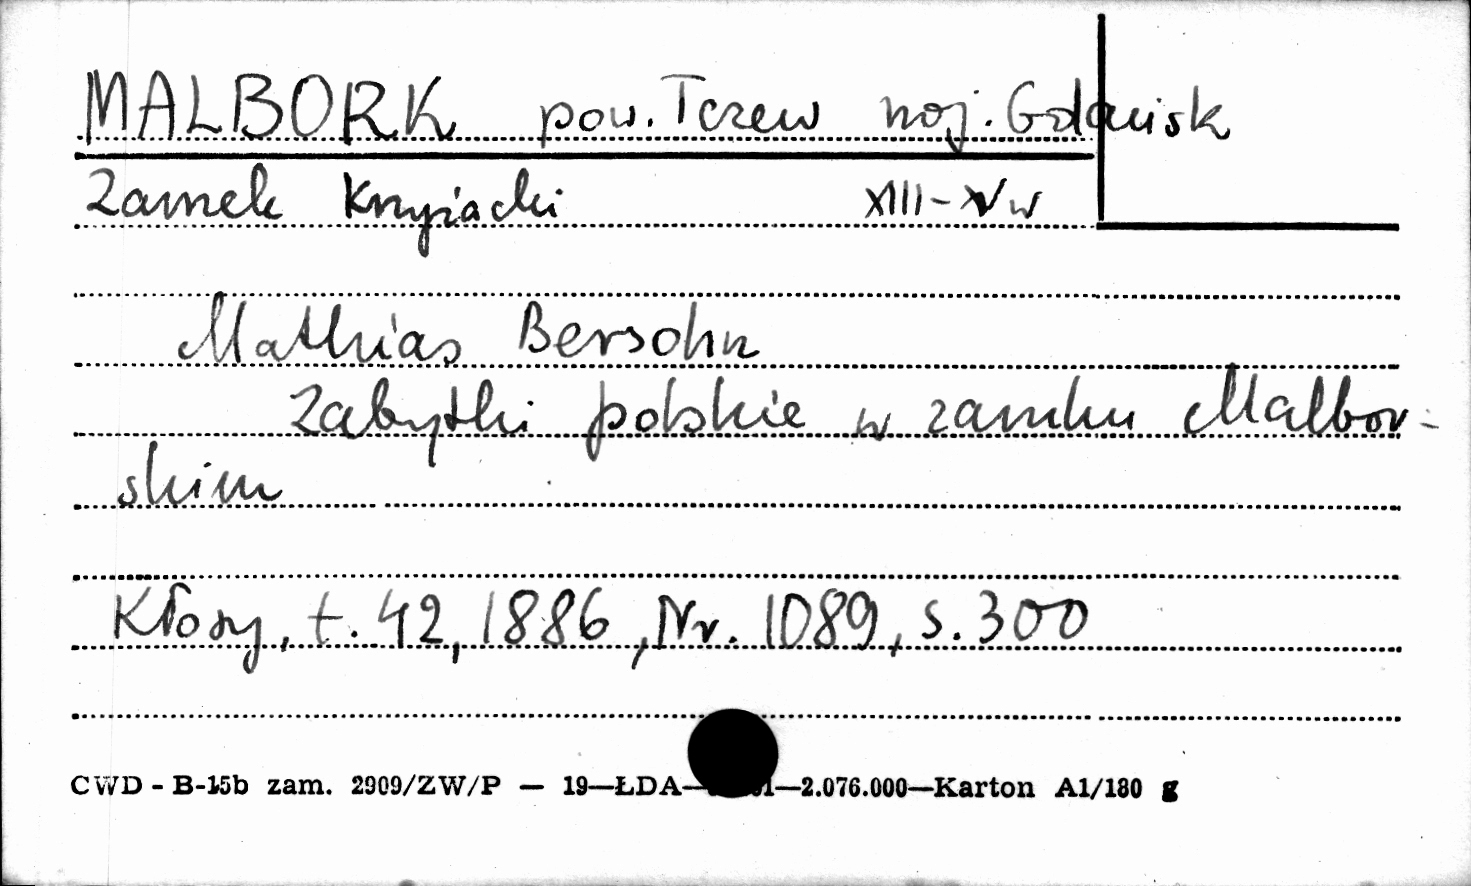 MALBORK pow. Tczew woj. Gdańsk
Zamek Krzyżacki XIII-XV w
Mathias Bersohn
Zabytki polskie w zamku Malbor-
skim
Kłosy, t. 42, 1886, Nr. 1089, s. 300
CWD - B-15b zam. 2909/ZW/P — 19—ŁDA— —2.076.000—Karton A1/180 g